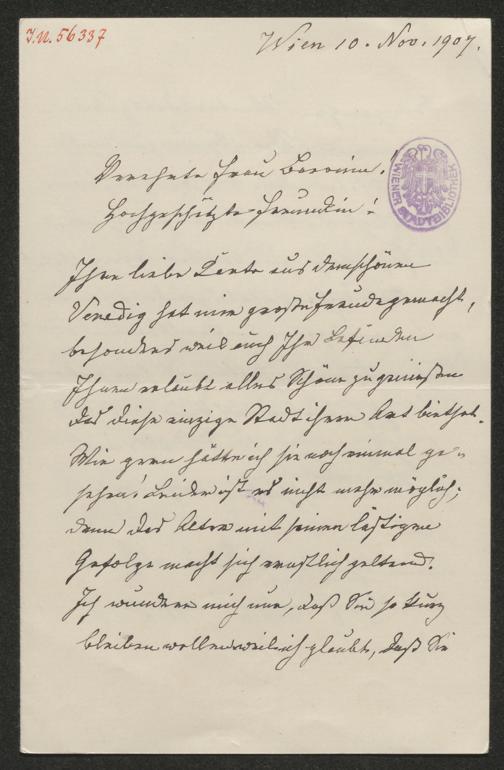 I.N. 56337
Wien 10. Nov. 1907.
WIENER STADTBIBLIOTHEK
Verehrte Frau Baronin,
Hochgeschätzte Freundin!
Ihre liebe Karte aus dem schönen
Venedig hat mir große Freude gemacht,
besonders weil auch Ihr Befinden
Ihnen erlaubt alles Schöne zu genießen
das diese einzige Stadt ihrer Art biethet.
Wie gern hätte ich sie noch einmal ge-
sehen! Leider ist es nicht mehr möglich;
denn das Alter mit seinem lästigen
Gefolge macht sich ernstlich geltend.
Ich wundere mich nur, daß Sie so kurz
bleiben wollen weil ich glaubte, daß Sie